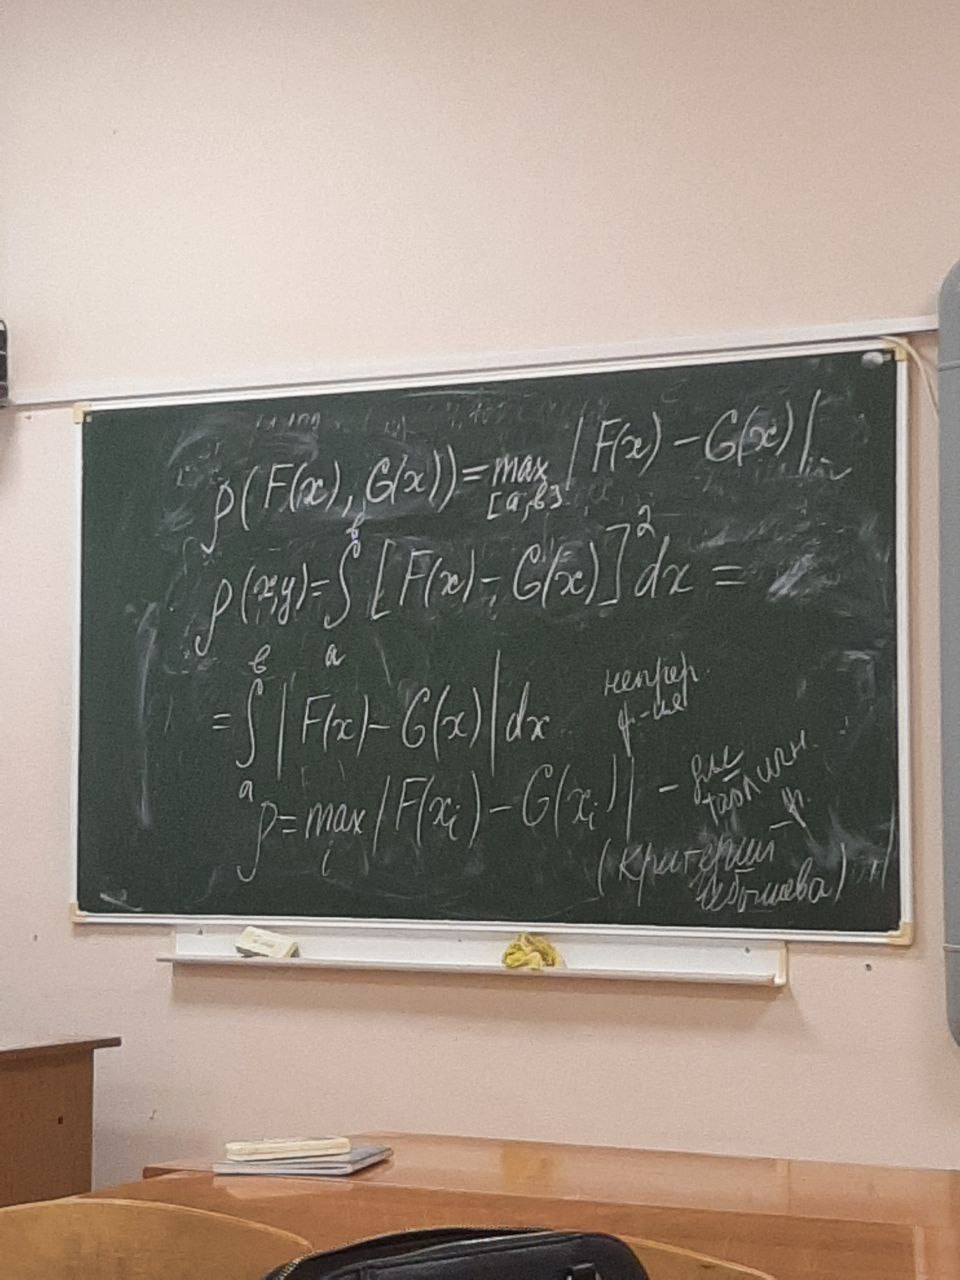 ρ(F(x), G(x)) = max [a, в] |F(x) - G(x)|
ρ(x,y) = ∫ₐᵇ [F(x) - G(x)]² dx =
= ∫ₐᵇ |F(x) - G(x)| dx непрер.
ф-ция
ρ = max i |F(xᵢ) - G(xᵢ)| - для
табличн.
ф.
(критерий
Чебышева)